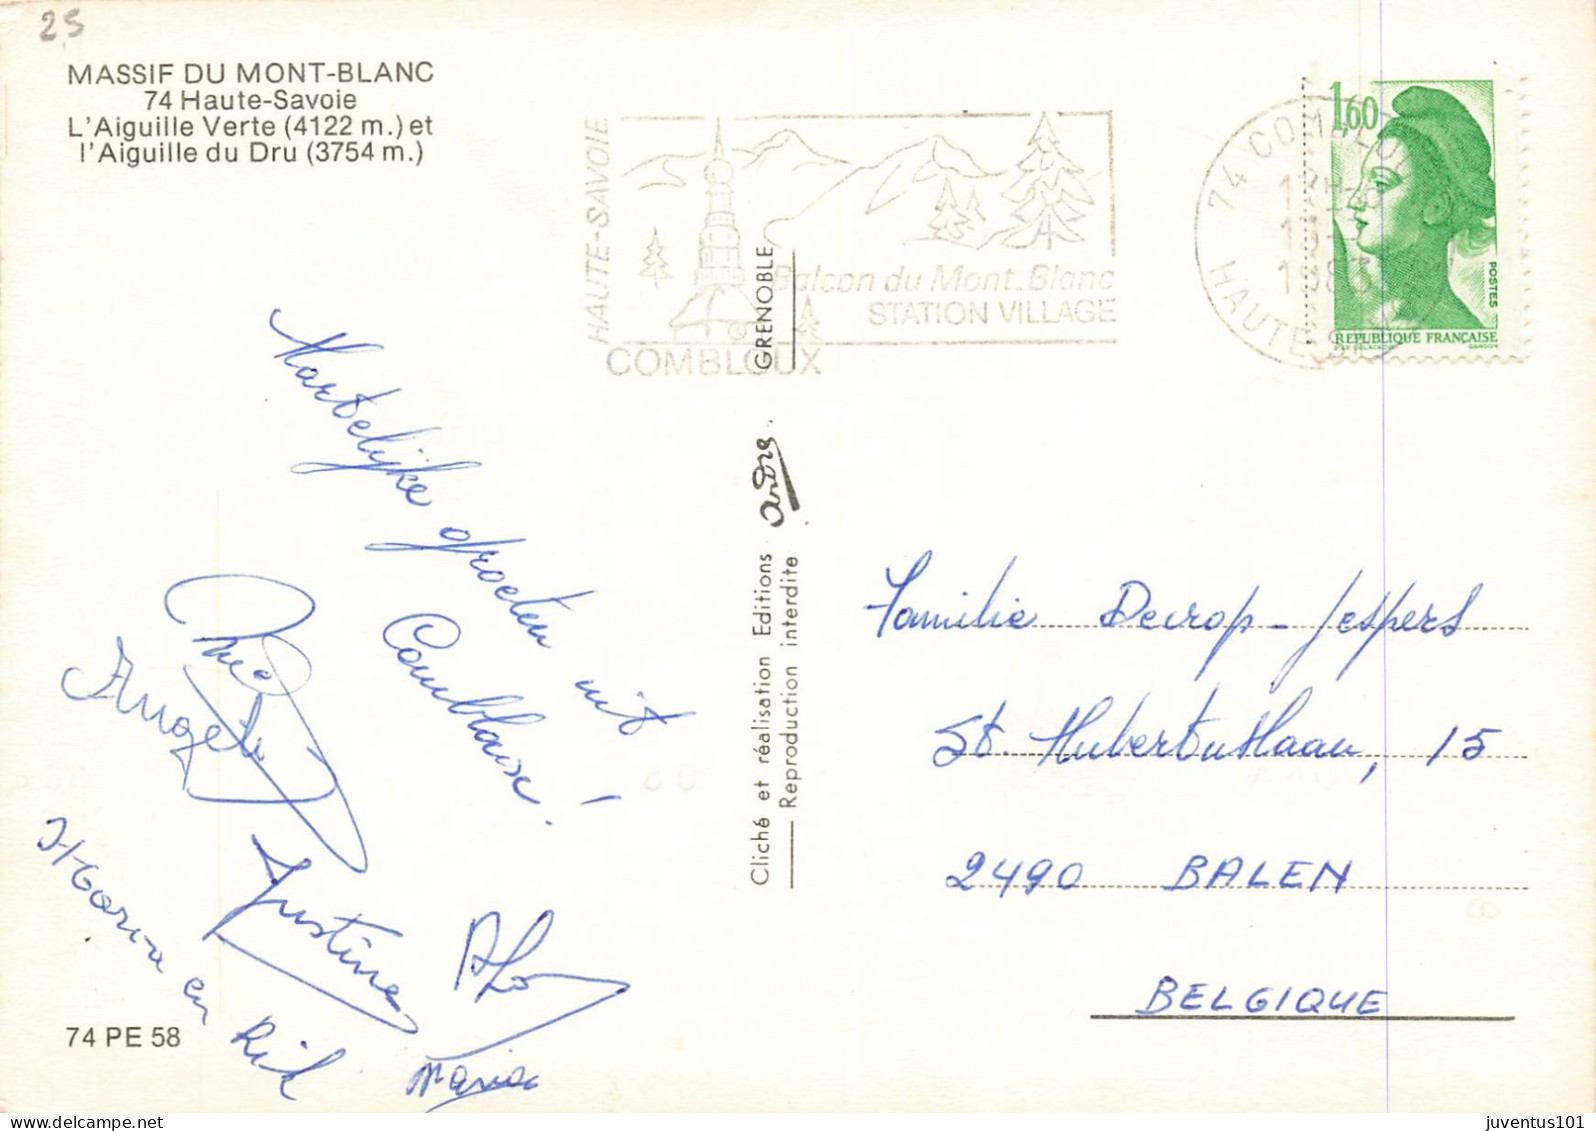 25
MASSIF DU MONT-BLANC
74 Haute-Savoie
L'Aiguille Verte (4122 m.) et
l'Aiguille du Dru (3754 m.)
HAUTE-SAVOIE
Balcon du Mont.Blanc
STATION VILLAGE
COMBLOUX
74 COMBLOUX
HAUTE-S
1983
1,60
POSTES
REPUBLIQUE FRANÇAISE
GANDON
Hartelijke groeten uit
Combloux!
Angele
Justine
Maria en Rik
Maria
74 PE 58
Cliché et réalisation Editions andre. GRENOBLE
Reproduction interdite
Familie Decrop-Jespers
St. Hubertuslaan, 15
2490 BALEN
BELGIQUE
juventus101